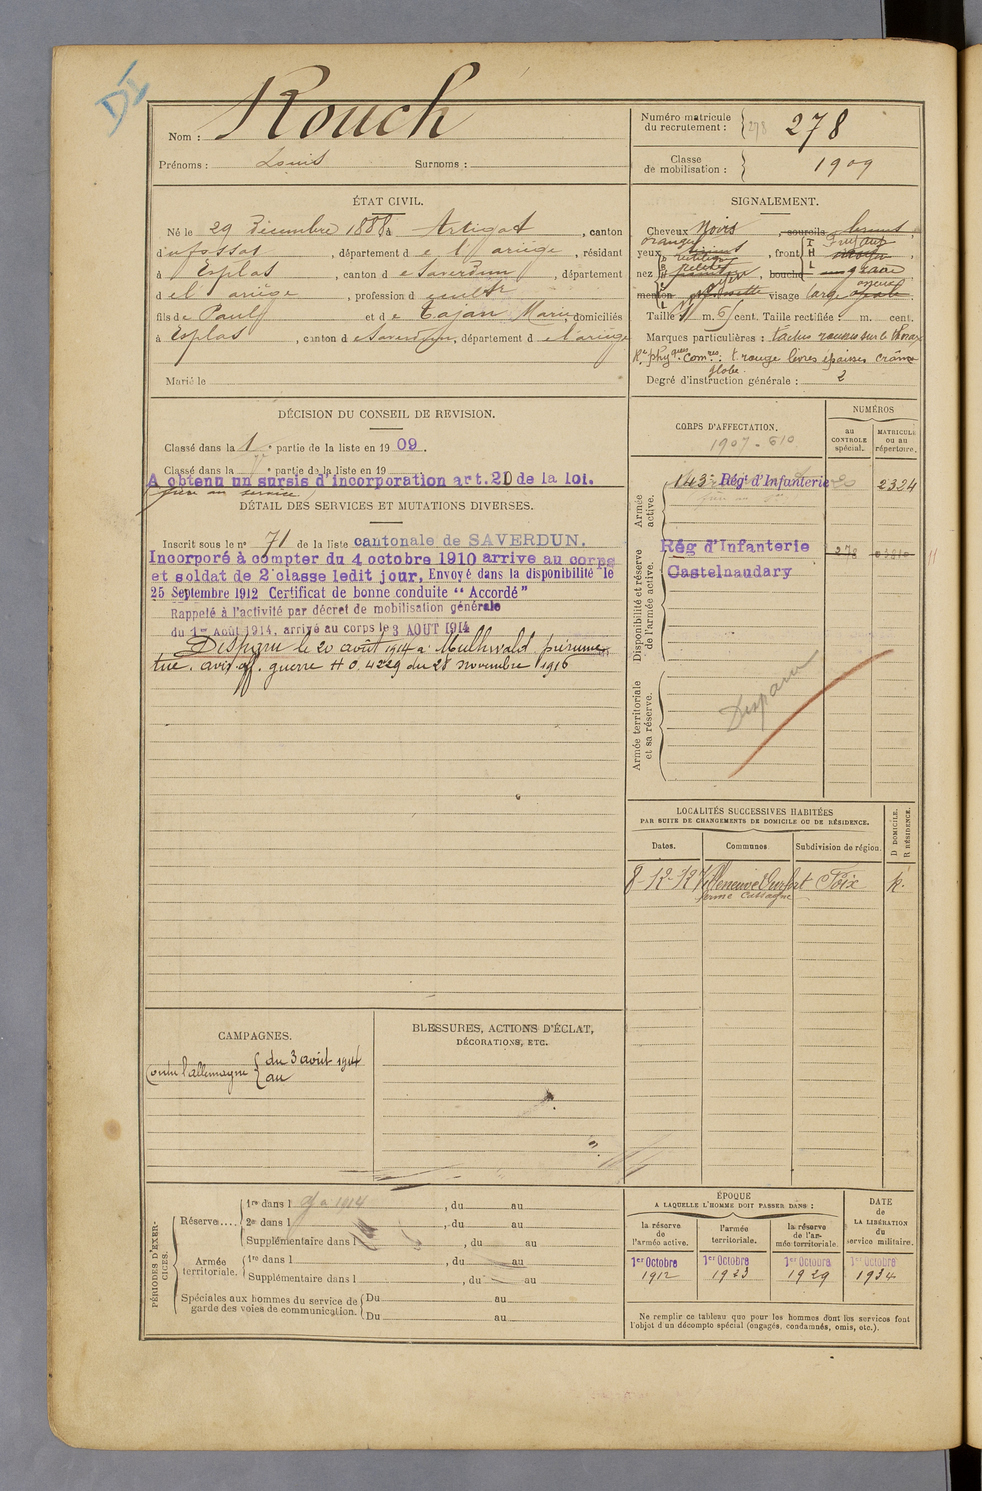 DI
Nom : Rouch
Prénoms : Louis Surnoms :
Numéro matricule du recrutement : 278 278
Classe de mobilisation : 1909
ÉTAT CIVIL.
Né le 29 Décembre 1888 à Artigat, canton
d'u fossat, département de l'ariège, résidant
à Esplas, canton de Saverdun, département
de l'ariège, profession d cultr
fils de Paul et de Tajan Marie, domiciliés
à Esplas, canton de Saverdun, département de l'ariège
Marié le
SIGNALEMENT.
Cheveux Noirs, sourcils bruns,
yeux orangé, front
nez, bouche grande
menton visage large ovale
Taille : 1 m. 61 cent. Taille rectifiée : m. cent.
Marques particulières : sur le thorax
Rts phyques comres : t. rouge lèvres épaisses crâne
globe.
Degré d'instruction générale : 2
DÉCISION DU CONSEIL DE REVISION.
Classé dans la 1e partie de la liste en 1909.
Classé dans la e partie de la liste en 19
A obtenu un sursis d'incorporation art. 20 de la loi.
frère au service
DÉTAIL DES SERVICES ET MUTATIONS DIVERSES.
Inscrit sous le no 71 de la liste cantonale de SAVERDUN.
Incorporé à compter du 4 octobre 1910 arrive au corps
et soldat de 2e classe ledit jour, Envoyé dans la disponibilité le
25 Septembre 1912 Certificat de bonne conduite “ Accordé ”
Rappelé à l'activité par décret de mobilisation générale
du 1er Août 1914, arrivé au corps le 3 AOUT 1914
Disparu le 20 août 1914 à Mulhwald présumé
tué. avis off. guerre H O. 4229 du 28 novembre 1916
CORPS D'AFFECTATION.
1907 - 610
NUMÉROS
au CONTROLE spécial.
MATRICULE ou au répertoire.
Armée active.
143e Régt d'Infanterie 20 2324
Disponibilité et réserve de l'armée active.
Rég d'Infanterie 278
Castelnaudary
Armée territoriale et sa réserve.
Disparu
LOCALITÉS SUCCESSIVES HABITÉES
PAR SUITE DE CHANGEMENTS DE DOMICILE OU DE RÉSIDENCE.
D DOMICILE.
R RÉSIDENCE.
Dates. Communes. Subdivision de région.
8-12-12 Villeneuve Durfort Foix R.
ferme Cassagne
CAMPAGNES.
Contre l'allemagne { du 3 août 1914
au
BLESSURES, ACTIONS D'ÉCLAT,
DÉCORATIONS, ETC.
PÉRIODES D'EXERCICES.
Réserve....
1re dans l 1914, du au
2e dans l, du au
Supplémentaire dans l, du au
Armée territoriale.
1re dans l, du au
Supplémentaire dans l, du au
Spéciales aux hommes du service de garde des voies de communication.
Du au
Du au
ÉPOQUE
A LAQUELLE L'HOMME DOIT PASSER DANS :
la réserve de l'armée active.
l'armée territoriale.
la réserve de l'armée territoriale.
DATE DE LA LIBÉRATION du service militaire.
1er Octobre 1er Octobre 1er Octobre 1er Octobre
1912 1923 1929 1934
Ne remplir ce tableau que pour les hommes dont les services font
l'objet d'un décompte spécial (engagés, condamnés, omis, etc.).